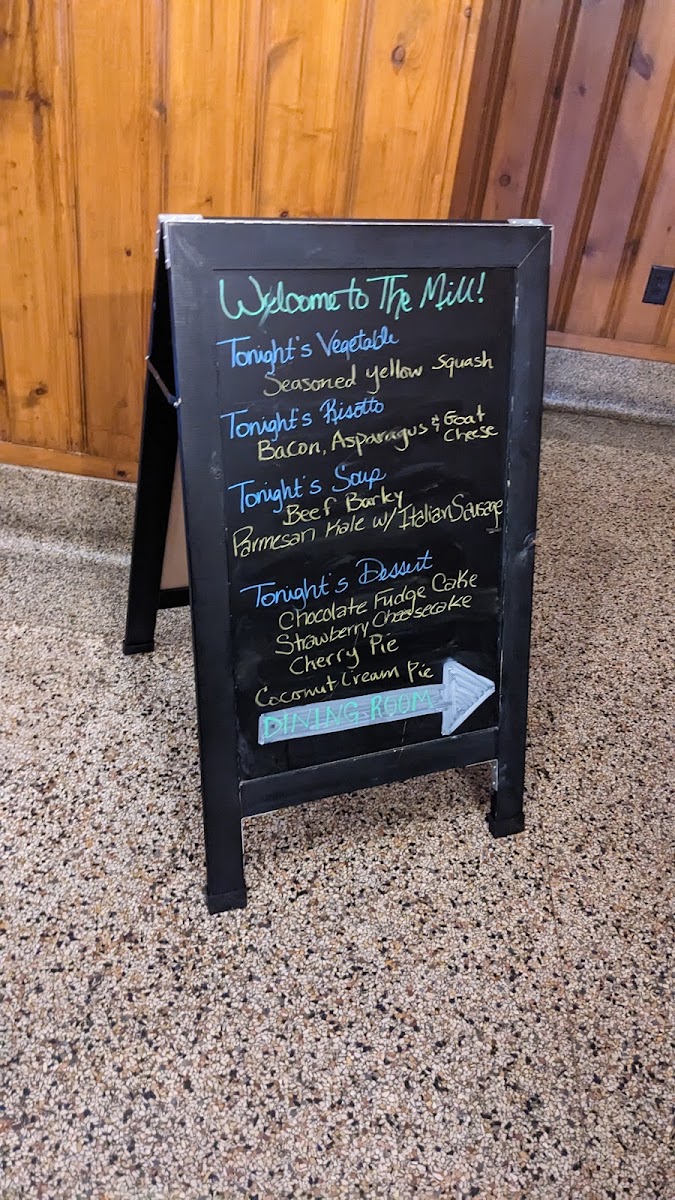 Welcome to The Mill!
Tonight's Vegetable
Seasoned yellow Squash
Tonight's Risotto
Bacon, Asparagus & Goat
Cheese
Tonight's Soup
Beef Barley
Parmesan Kale w/ Italian Sausage
Tonight's Dessert
Chocolate Fudge Cake
Strawberry Cheesecake
Cherry Pie
Coconut Cream Pie
DINING ROOM